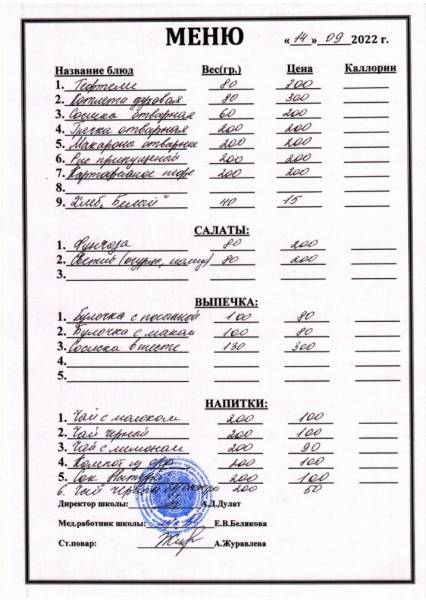 МЕНЮ « 14 » 09 2022 г.
Название блюд Вес(гр.) Цена Каллории
1. Тефтели 80 300
2. Котлета куровая 80 300
3. Сосиска отварная 60 200
4. Гречка отварная 200 200
5. Макароны отварные 200 200
6. Рис припущеной 200 200
7. Картофельное пюре 200 200
8.
9. Хлеб „Белый" 40 15
САЛАТЫ:
1. Фунчоза 80 200
2. Свежий (огурцы, помид) 80 200
3.
ВЫПЕЧКА:
1. Булочка с 100 80
2. Булочка с маком 100 80
3. Сосиска в тесте 130 300
4.
5.
НАПИТКИ:
1. Чай с молоком 200 100
2. Чай черный 200 100
3. Чай с лимоном 200 90
4. Компот из 200 100
5. Сок 200 100
6. Чай черный 200 50
Директор школы: А.Д.Дулат
Мед.работник школы: Е.В.Белякова
Ст.повар: А.Журавлева